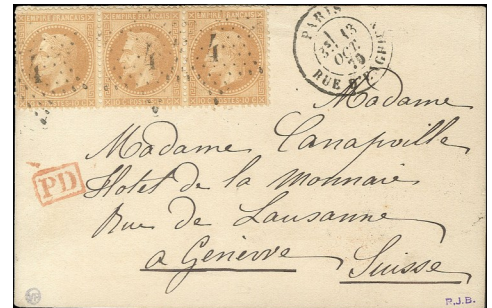 EMPIRE FRANÇAIS EMPIRE FRANÇAIS EMPIRE FRANÇAIS
4 4 4
PARIS
13
OCT.
70
RUE D'ENGHIEN
Madame
Madame Canapville
PD
Hotel de la Monnaie
Rue de Lausanne
a Genève
Suisse
P.J.B.